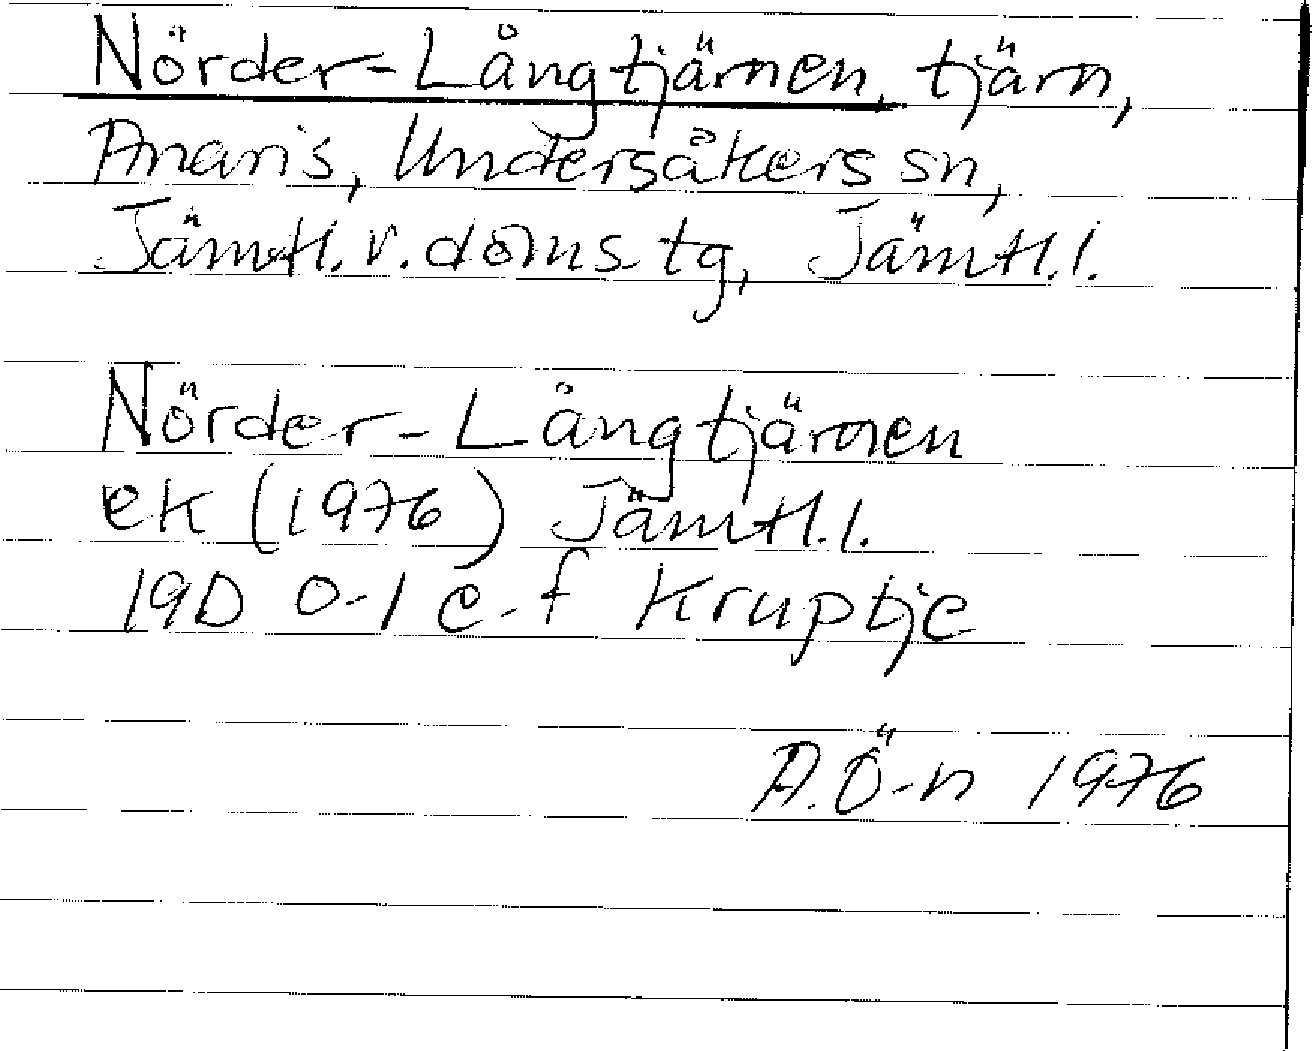 Nörder-Långtjärnen, tjärn,
Anaris, Undersåkers sn,
Jämtl. v. doms. tg, Jämtl. l.
Nörder-Långtjärnen
ek (1976) Jämtl. l.
19D 0-1 e-f Kruptje
A.Ö-n 1976